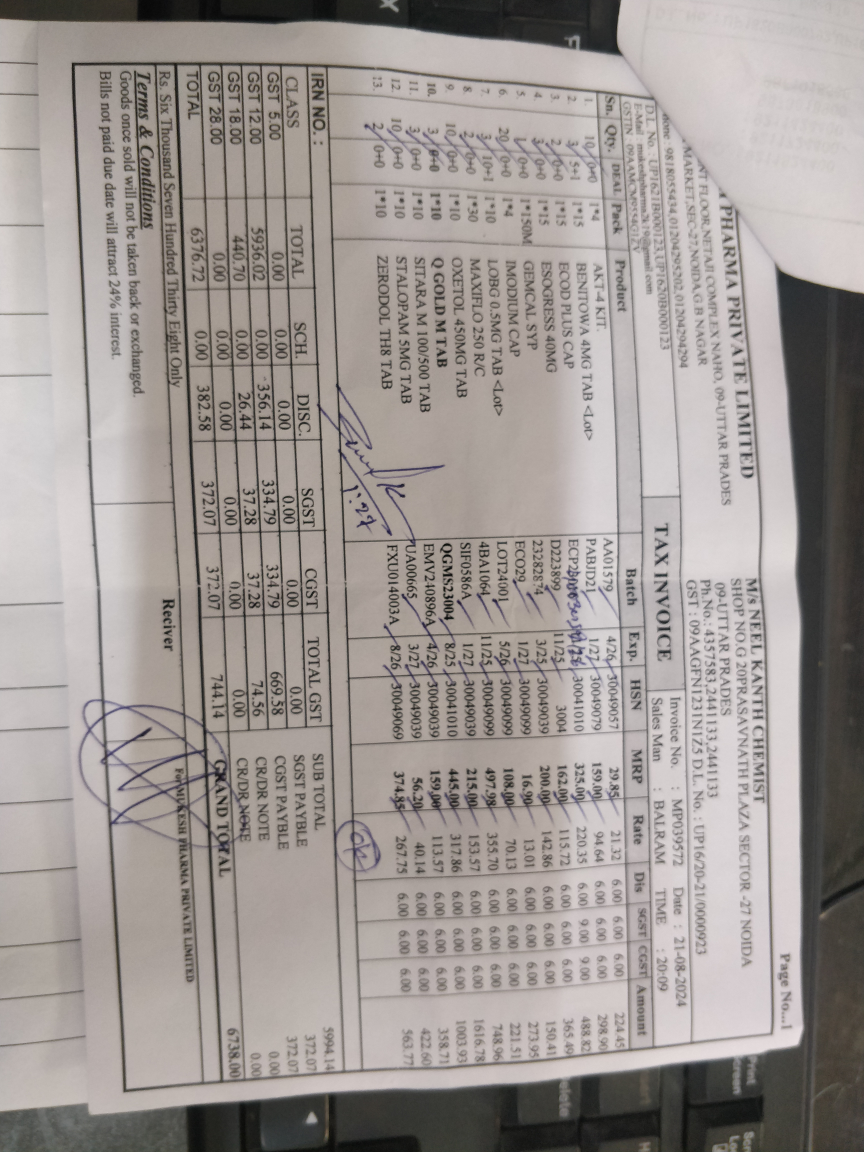 PHARMA PRIVATE LIMITED
FLOOR,NETAJI COMPLEX NAHO, 09-UTTAR PRADES
MARKET,SEC-27,NOIDA,G.B NAGAR
9818055434,01204295202,01204294294
D.L. No. : UP1621B000123,UP1620B000123
E-Mail : mukeshpharma2k19@gmail.com
TAX INVOICE
Page No...1
M/s NEEL KANTH CHEMIST
SHOP NO.G 20PRASAVNATH PLAZA SECTOR -27 NOIDA
09-UTTAR PRADES
Ph.No.: 4357583,2441133,2441133
GST : 09AAGFN1231N1Z5 D.L. No. : UP16/20-21/0000923
Invoice No. : MP039572 Date : 21-08-2024
Sales Man : BALRAM TIME : 20:09
Sn. Qty. DEAL Pack Product Batch Exp. HSN MRP Rate Dis SGST CGST Amount
1. 10 0+0 1*4 AKT-4 KIT. AA01579 4/26 30049057 29.85 21.32 6.00 6.00 6.00 224.45
2. 3 5+1 1*15 BENITOWA 4MG TAB <Lot> PABJD21 1/27 30049079 159.00 94.64 6.00 6.00 6.00 298.90
3. 2 0+0 1*15 ECOD PLUS CAP 30041010 325.00 220.35 6.00 9.00 9.00 488.82
4. 3 0+0 1*15 ESOGRESS 40MG D223899 11/25 3004 162.00 115.72 6.00 6.00 6.00 365.49
5. 1 0+0 1*150M GEMCAL SYP 23282874 3/25 30049039 200.00 142.86 6.00 6.00 6.00 150.41
6. 20 0+0 1*4 IMODIUM CAP ECO29 1/27 30049099 16.90 13.01 6.00 6.00 6.00 273.95
7. 3 10+1 1*10 LOBG 0.5MG TAB <Lot> LOT24001 5/26 30049099 108.00 70.13 6.00 6.00 6.00 221.51
8. 2 0+0 1*30 MAXIFLO 250 R/C 4BA1064 11/25 30049099 497.98 355.70 6.00 6.00 6.00 748.96
9. 10 0+0 1*10 OXETOL 450MG TAB SIF0586A 1/27 30049039 215.00 153.57 6.00 6.00 6.00 1616.78
10. 3 0+0 1*10 Q GOLD M TAB QGMS23004 8/25 30041010 445.00 317.86 6.00 6.00 6.00 1003.93
11. 3 0+0 1*10 SITARA M 100/500 TAB EMV240896A 4/26 30049039 159.00 113.57 6.00 6.00 6.00 358.71
12. 10 0+0 1*10 STALOPAM 5MG TAB UA00665 3/27 30049039 56.20 40.14 6.00 6.00 6.00 422.60
13. 2 0+0 1*10 ZERODOL TH8 TAB FXU014003A 8/26 30049069 374.85 267.75 6.00 6.00 6.00 563.77
OK
IRN NO. :
CLASS TOTAL SCH. DISC. SGST CGST TOTAL GST
GST 5.00 0.00 0.00 0.00 0.00 0.00 0.00
GST 12.00 5936.02 0.00 356.14 334.79 334.79 669.58
GST 18.00 440.70 0.00 26.44 37.28 37.28 74.56
GST 28.00 0.00 0.00 0.00 0.00 0.00 0.00
TOTAL 6376.72 0.00 382.58 372.07 372.07 744.14
SUB TOTAL 5994.14
SGST PAYBLE 372.07
CGST PAYBLE 372.07
CR/DR NOTE 0.00
CR/DR NOTE 0.00
GRAND TOTAL 6738.00
Rs. Six Thousand Seven Hundred Thirty Eight Only
Terms & Conditions
Goods once sold will not be taken back or exchanged.
Bills not paid due date will attract 24% interest.
Reciver
For MUKESH PHARMA PRIVATE LIMITED